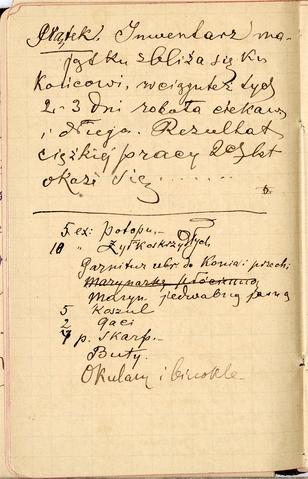 Piątek. Inwentarz ma-
jątku zbliża się ku
końcowi, w ciągu tych
2-3 dni robota ciekawa
i długa. Rezultat
ciężkiej pracy lat
okaże się........
6.
5 ex: Potopu.-
10 "
Garnitur ubr. do Konia i
marynarkę płócienną
Maryn. jedwabną jasną
5 Koszul
2 Gaci
7 p. Skarp.-
Buty.
Okulary i binokle.